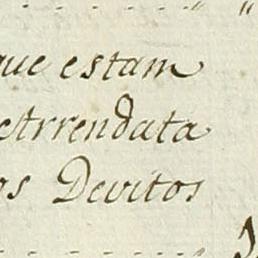 que estam
Arrendata
os Devitos